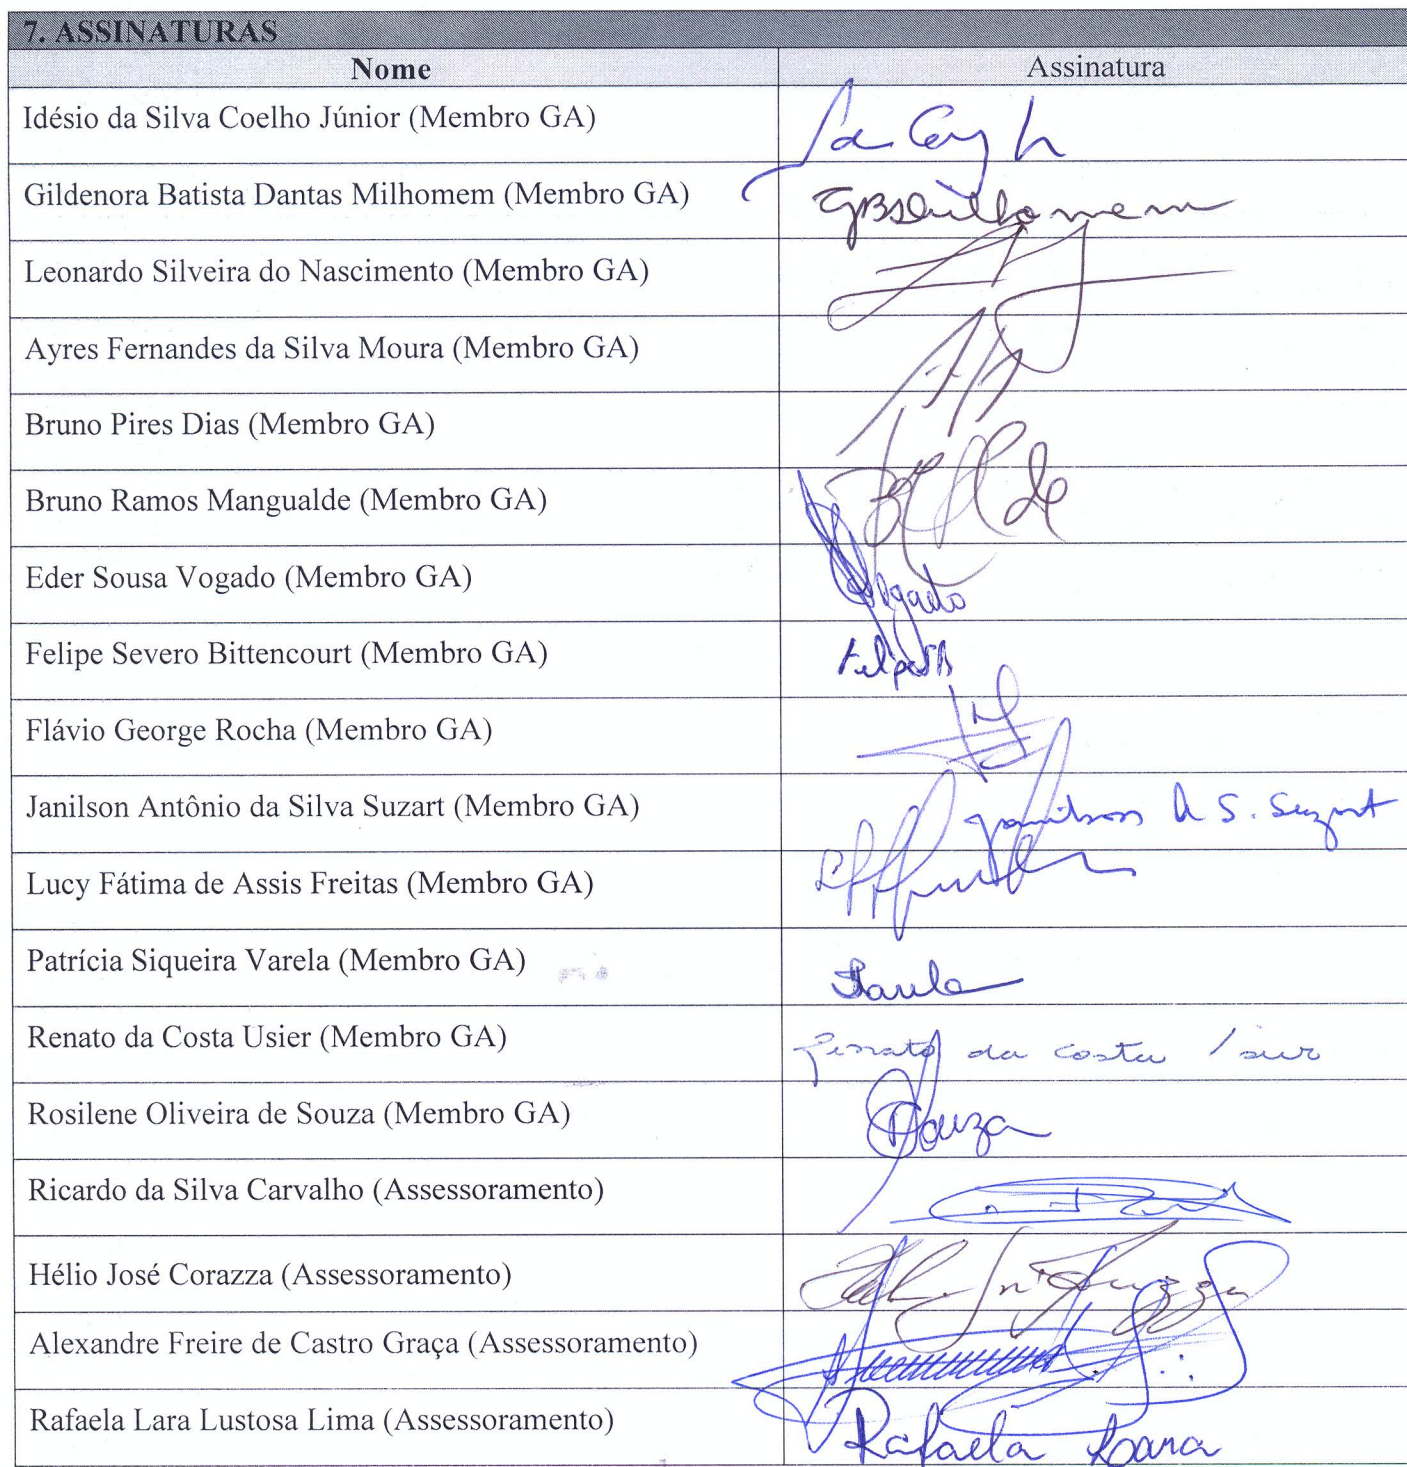 7. ASSINATURAS
Nome Assinatura
Idésio da Silva Coelho Júnior (Membro GA)
Gildenora Batista Dantas Milhomem (Membro GA) GBSMilhomem
Leonardo Silveira do Nascimento (Membro GA)
Ayres Fernandes da Silva Moura (Membro GA)
Bruno Pires Dias (Membro GA)
Bruno Ramos Mangualde (Membro GA)
Eder Sousa Vogado (Membro GA) Vogado
Felipe Severo Bittencourt (Membro GA) FelipeSB
Flávio George Rocha (Membro GA)
Janilson Antônio da Silva Suzart (Membro GA) Janilson A S. Suzart
Lucy Fátima de Assis Freitas (Membro GA)
Patrícia Siqueira Varela (Membro GA)
Renato da Costa Usier (Membro GA) Renato da Costa Usier
Rosilene Oliveira de Souza (Membro GA) Souza
Ricardo da Silva Carvalho (Assessoramento)
Hélio José Corazza (Assessoramento)
Alexandre Freire de Castro Graça (Assessoramento)
Rafaela Lara Lustosa Lima (Assessoramento) Rafaela Lara